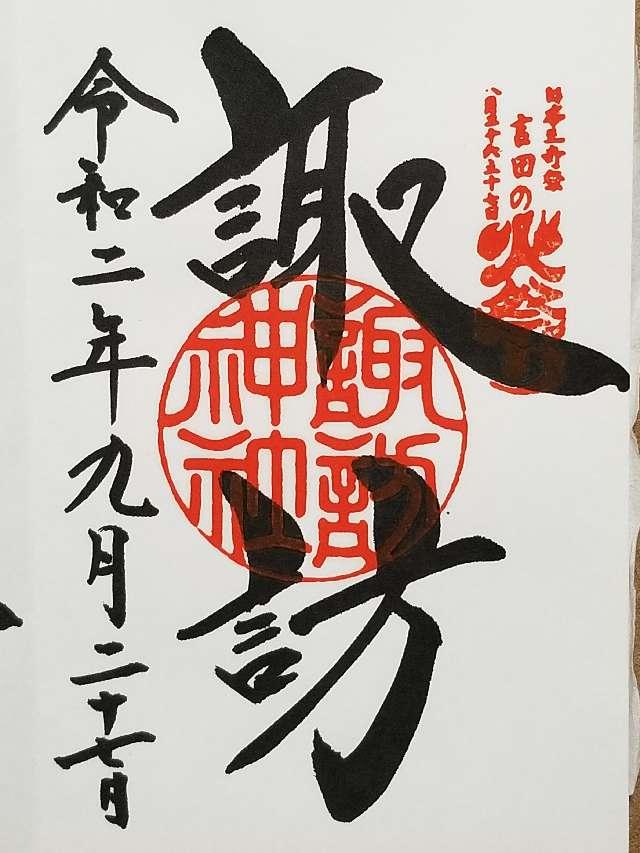 日本三奇祭
吉田の火祭
八月二十六二十七日
諏訪
諏訪
神社
令和二年九月二十七日